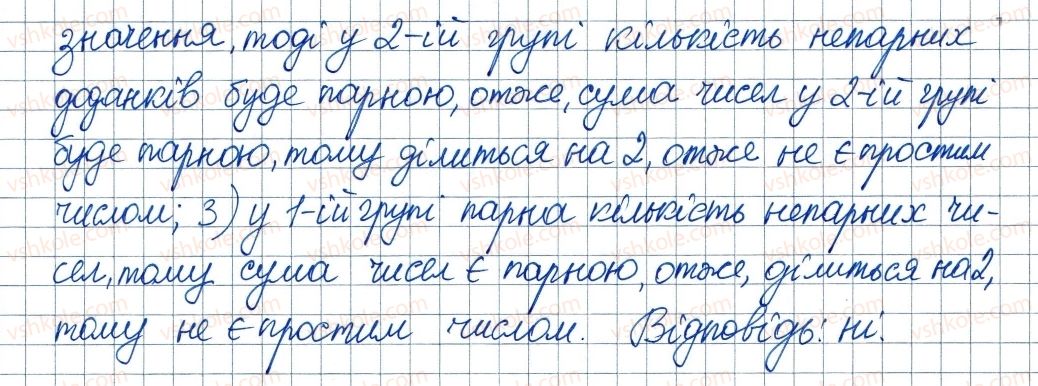 значення, тоді у 2-ій групі кількість непарних
доданків буде парною, отже, сума чисел у 2-ій групі
буде парною, тому ділиться на 2, отже не є простим
числом; 3) у 1-ій групі парна кількість непарних чи-
сел, тому сума чисел є парною, отже, ділиться на 2,
тому не є простим числом. Відповідь: ні.